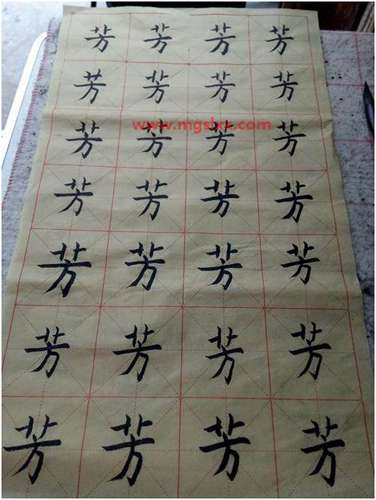 芳 芳 芳 芳
芳 芳 芳 芳
芳 芳 芳 芳
www.mgslxx.com
芳 芳 芳 芳
芳 芳 芳 芳
芳 芳 芳 芳
芳 芳 芳 芳